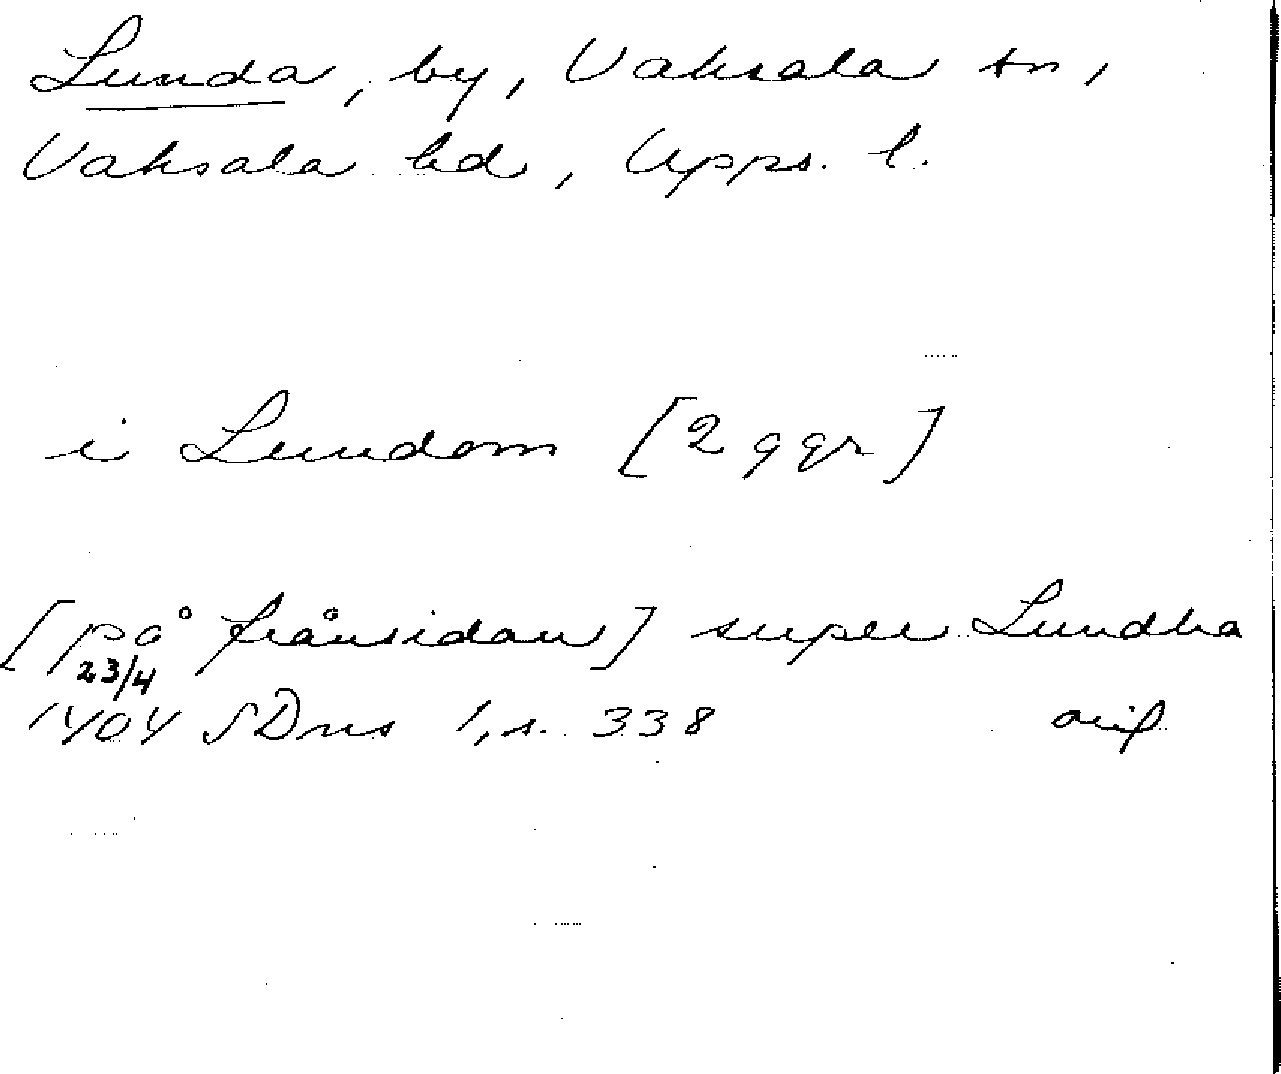 Lunda, by, Vaksala sn,
Vaksala hd, Upps. l.
i Lundom [2 ggr]
[på frånsidan] super Lundha
23/4
1404 SDns 1, s. 338 orig